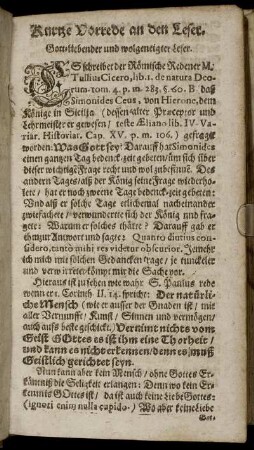 Kurtze Vorrede an den Leser.
Gottliebender und wolgeneigter Leser.
ES schreibet der Römische Redener M.
Tullius Cicero, lib. 1. de natura Deo-
rum. tom. 4. p. m. 283. §. 60. B daß
Simonides Ceus, von Hierone, dem
Könige in Sicilia (dessen alter Præceptor und
Lehrmeister er gewesen / teste Æliano lib. IV. Va-
riar. Historiar. Cap. XV. p. m. 106.) gefragt
worden: Was Gott sey? Darauff hat Simonides
einen gangen Tag bedenck-zeit gebeten / üm sich über
dieser wichtige Frage recht und wol zubesinnē. Des
andern Tages / alß der König seine Frage wiederho-
let / hat er noch zweene Tage bedenck-zeit gebeten:
Und alß er solche Tage etlichemal nacheinander
zwiefachete / verwunderte sich der König und frag-
te: Warum er solches thäte? Darauff gab er
ihm zur Antwort und sagte: Quantò diutius con-
sidero, tantò mihi res videtur obscurior. Je mehr
ich mich mit solchen Gedancken trage / je tunckeler
und verwirreter kömt mir die Sache vor.
Hieraus ist zusehen wie wahr S. Paulus rede
wenn er 1. Corinth. II. 14. spricht: Der natürli-
che Mensch (wie er ausser der Gnaden ist / mit
aller Vernunfft / Kunst / Sinnen und vermögen /
auch auffs beste geschickt) Vernimt nichts vom
Geist GOttes es ist ihm eine Thorheit /
und kann es nicht erkennen / denn es muß
Geistlich gerichtet seyn.
Nun kann aber kein Mensch / ohne Gottes Er-
käntniß die Seligkeit erlangen: Denn wo kein Er-
kenntnis GOttes ist / da ist auch keine Liebe Gottes:
(ignoti enim nulla cupido.) Wo aber keine Liebe